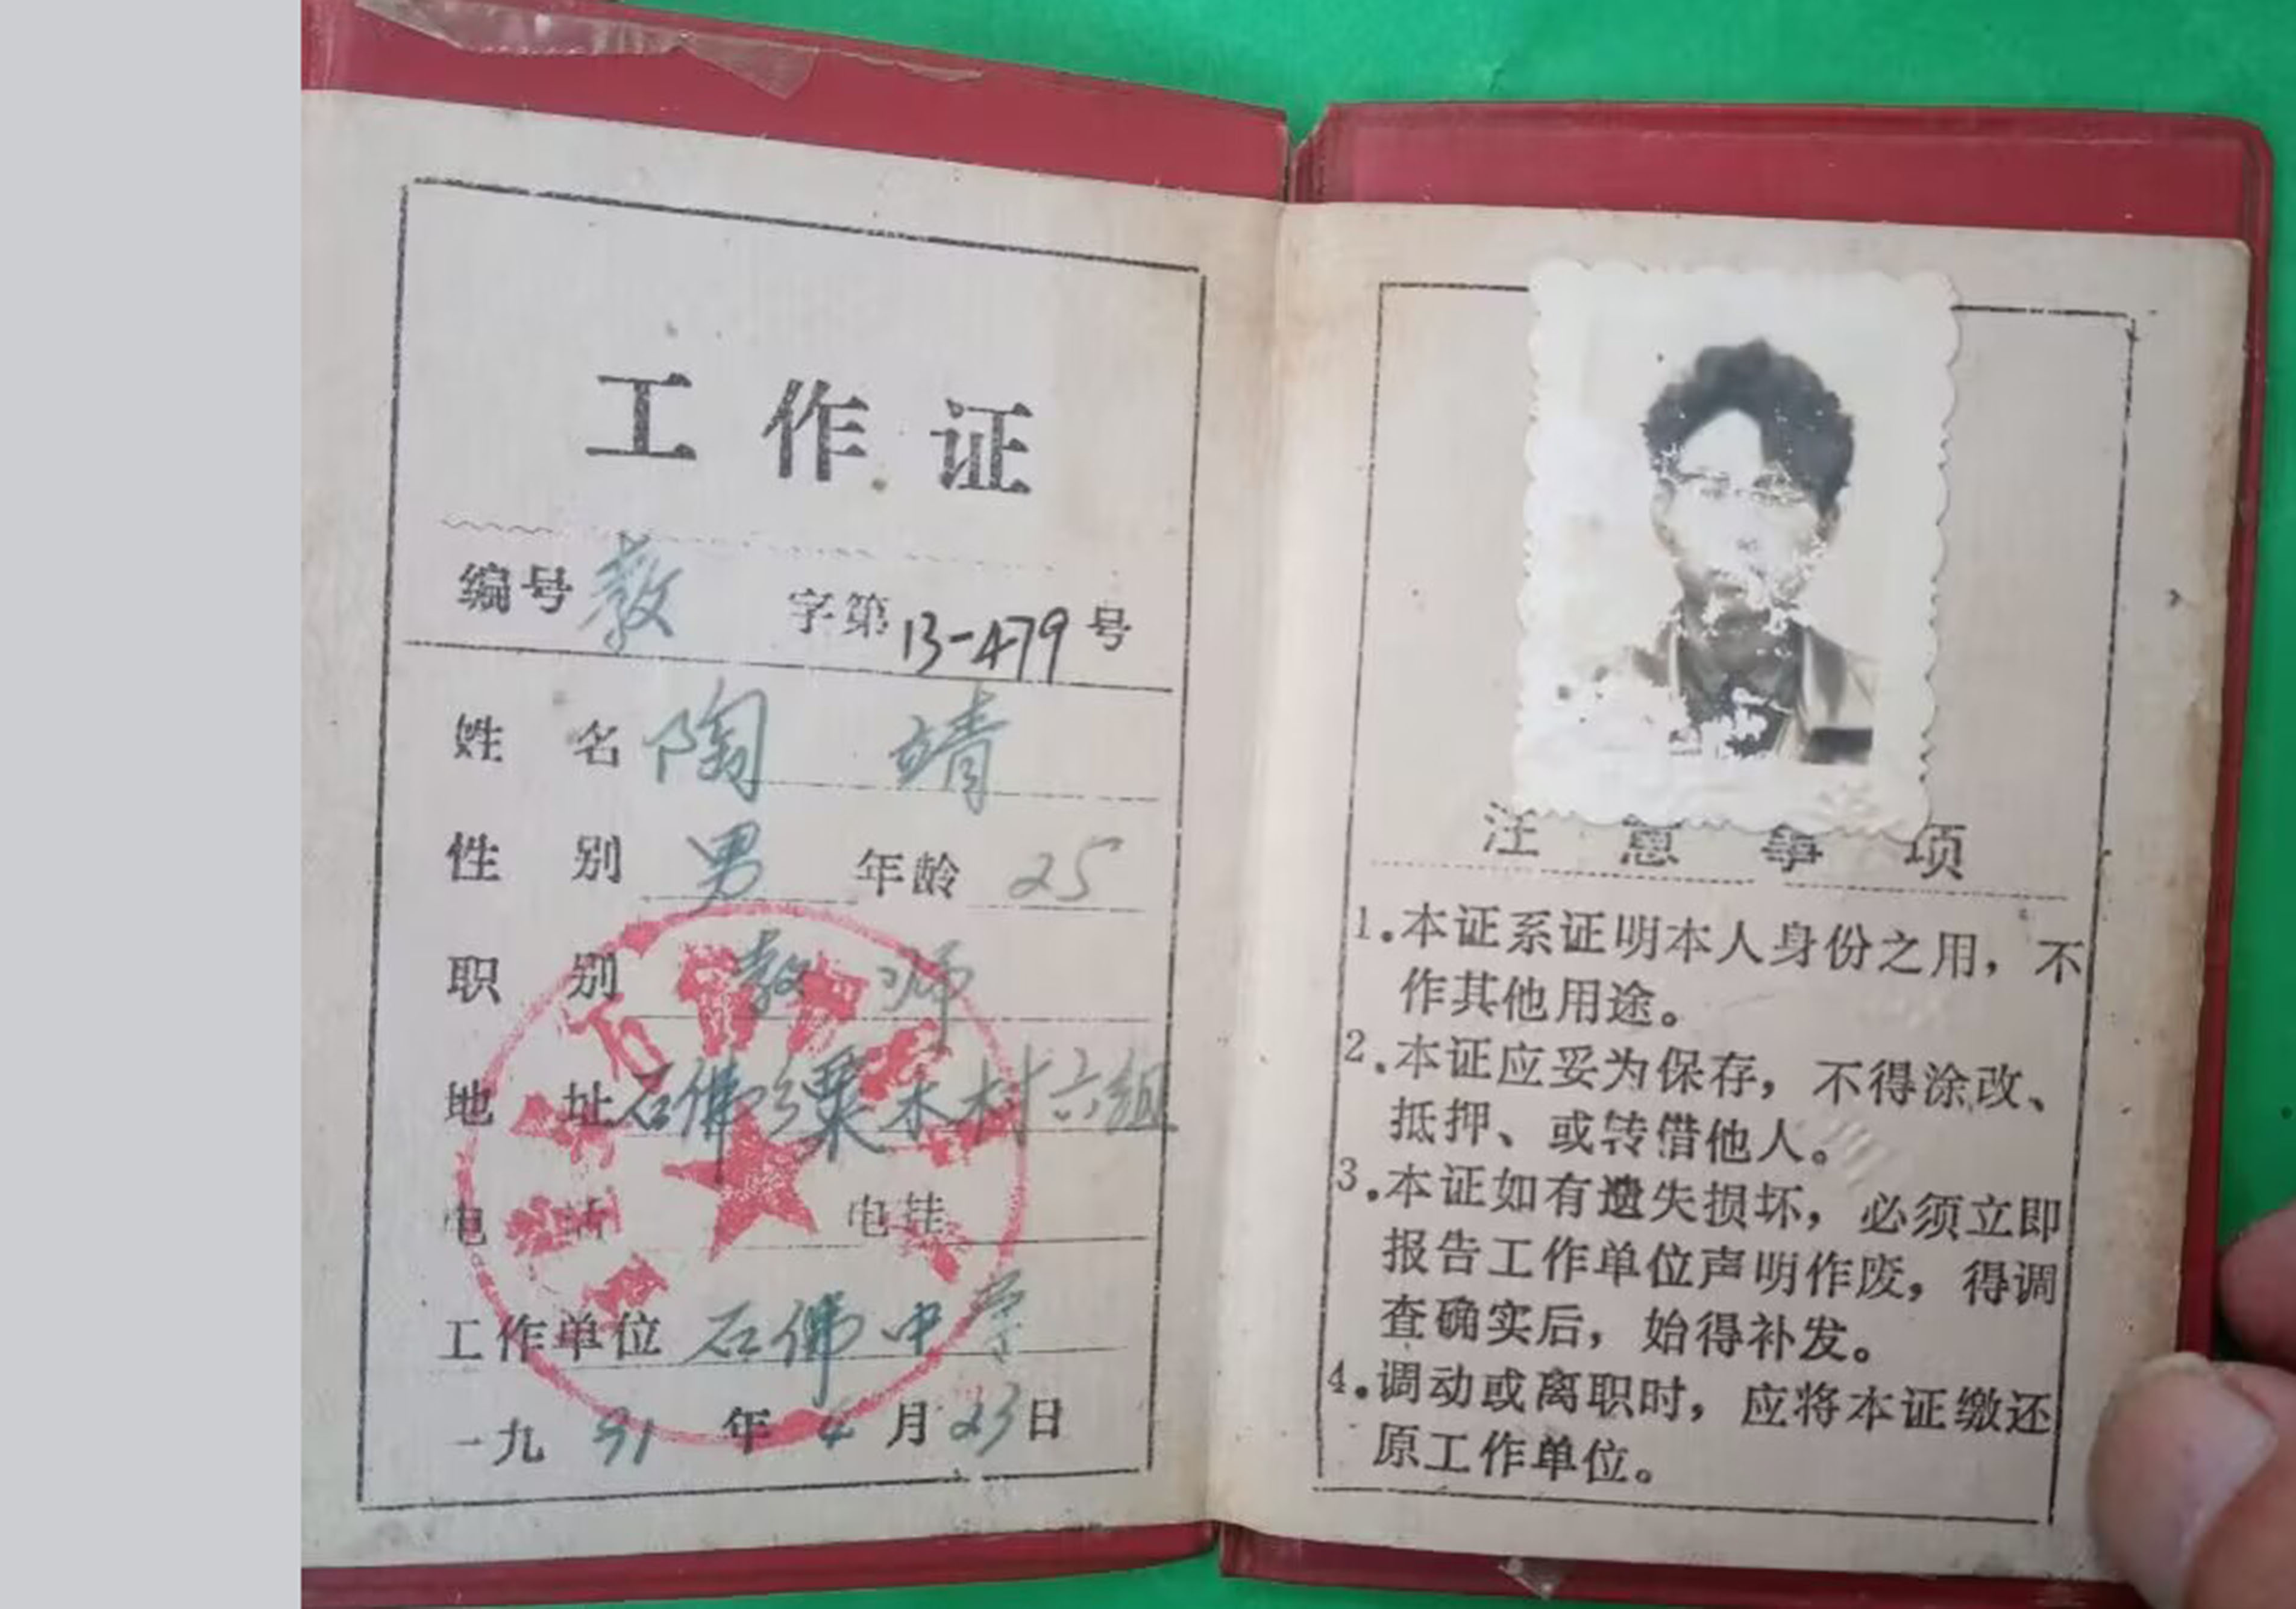 工作证
编号 教 字第 13-479 号
姓名 陶靖
性别 男 年龄 25
职别 教师
地址 石佛乡粟木村六组
电话 电挂
工作单位 石佛中学
一九 91 年 4 月 23 日
注意事项
1.本证系证明本人身份之用，不
作其他用途。
2.本证应妥为保存，不得涂改、
抵押、或转借他人。
3.本证如有遗失损坏，必须立即
报告工作单位声明作废，得调
查确实后，始得补发。
4.调动或离职时，应将本证缴还
原工作单位。